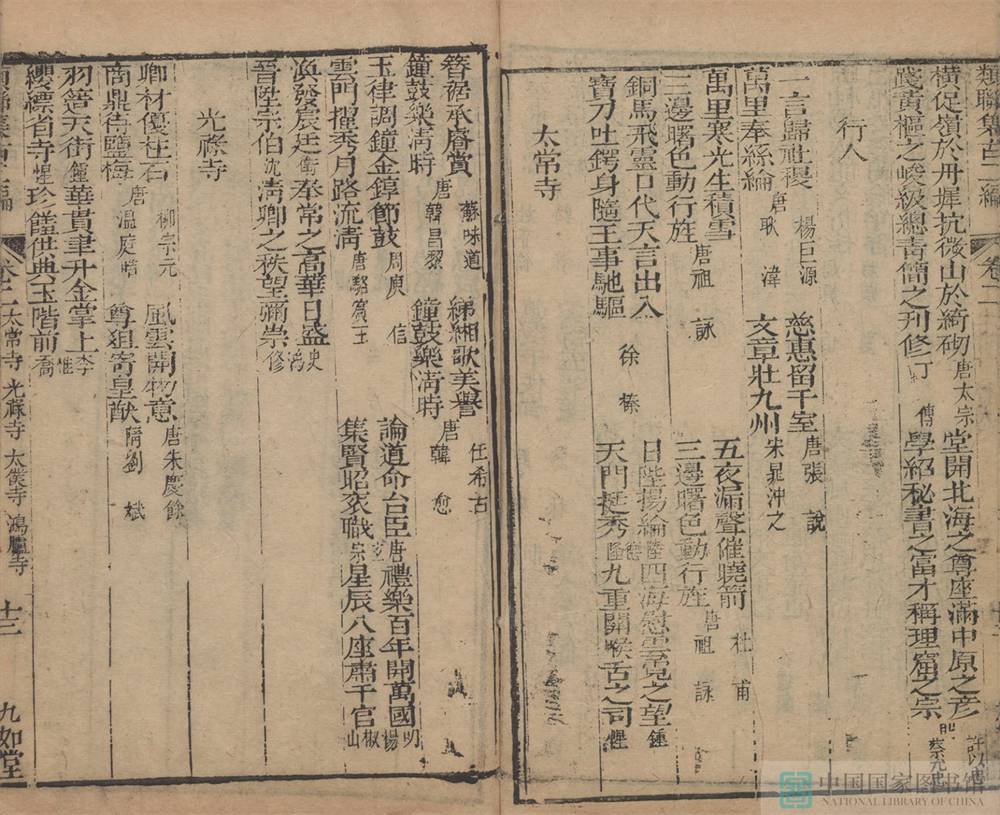 類聯集古二編 卷二
橫促嶺於丹墀抗微山於綺砌 唐太宗 堂開北海之尊座滿中原之彥
踐黃樞之峻級總青簡之刊修 丁 傅 學紹秘書之富才稱理窟之宗 蔡
行人
一言歸社稷 楊巨源 慈惠留千室 唐張 說
萬里奉絲綸 唐耿 湋 文章壯九州 宋晁沖之
萬里寒光生積雪 五夜漏聲催曉箭 杜 甫
三邊曙色動行旌 唐祖 詠 三邊曙色動行旌 唐祖 詠
銅馬飛靈口代天言出入 日陛揚綸 四海慰雲霓之望 鍾
寶刀吐鍔身隨王事馳驅 徐 榛 天門挺秀 九重開喉舌之司 惺
太常寺
簪裾承睿賞 蘇味道 綈緗歌美譽 任希古
鐘鼓樂淸時 唐韓昌黎 鐘鼓樂淸時 唐韓 愈
玉律調鐘金錞節鼓 周庾 信 論道命台臣 唐 禮樂百年開萬國 明楊
雲門擢秀月路流淸 唐駱賓王 集賢昭袞職 宗 星辰八座肅千官 椒山
渙發宸廷 衛 奉常之高華日盛 史
晉陞宗伯 沈 淸卿之秩望彌崇 馮修
光祿寺
卿材優柱石 柳宗元 風雲開物意 唐朱慶餘
商鼎待鹽梅 唐溫庭皓 尊狙寄皇猷 隋劉 斌
羽簉天街 鍾 華貴聿升金掌上 李
纓縹省寺 惺 珍饉供典玉階前 惟喬
卷二 太常寺 光祿寺 太僕寺 鴻臚寺 十二 九如堂
中国国家图书馆
NATIONAL LIBRARY OF CHINA